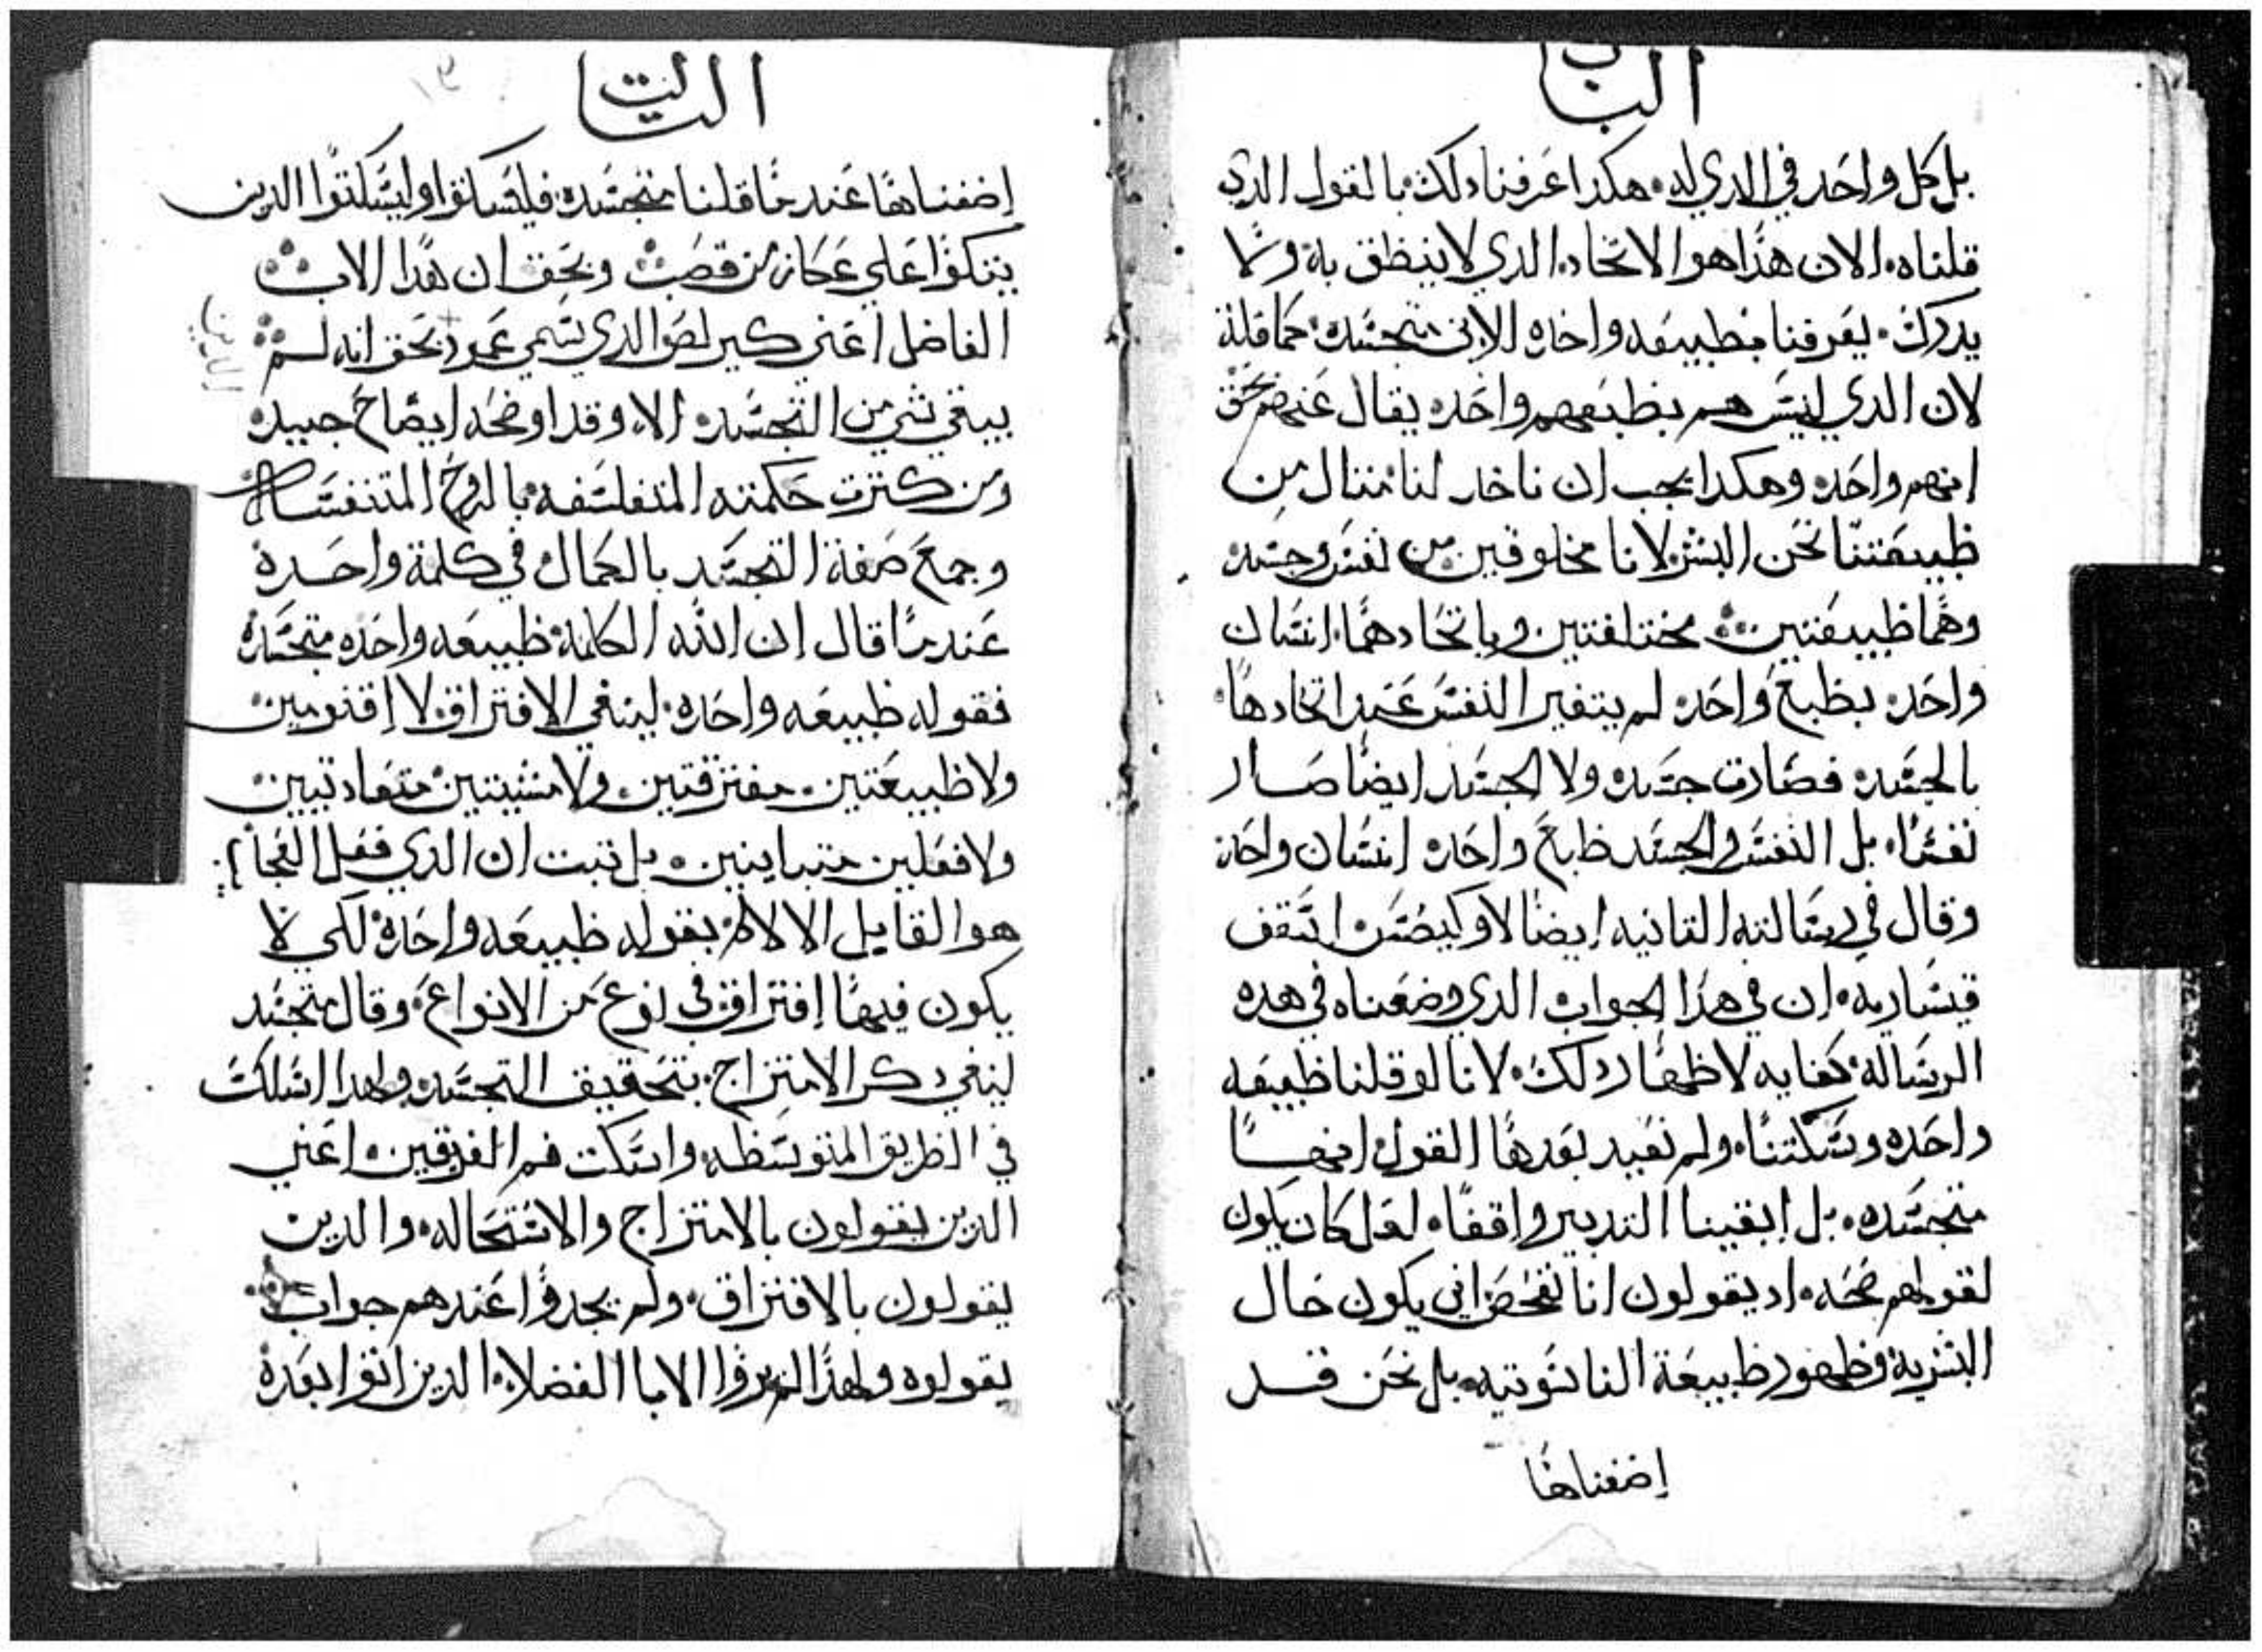 الباب
بل كل واحد في الدي له هكدا عرفنا دلك بالقول الدي
قلناه الان هدا هو الاتحاد الدي لا ينطق به ولا
يدرك يعرفنا بطبيعه واحده الابن متجسده كما قلنا
لان الدي ليس هم بطبعهم واحده يقال عنهم بحق
انهم واحده وهكدا يجب ان ناخد لنا متال من
طبيعتنا نحن البشر لانا مخلوقين من نفس وجسد
وهما طبيعتين مختلفتين وباتحادهما انسان
واحد بطبع واحد لم يتغير النفس عند اتحادها
بالجسد فصارت جسد ولا الجسد ايضا صار
نفسا بل النفس والجسد طابع واحد انسان واحد
وقال في رسالته التانيه ايضا لاوكيضس اسقف
قيساريه ان في هدا الجواب الدي وضعناه في هده
الرساله كفايه لاظهار دلك لانا لو قلنا طبيعه
واحده وسكتنا ولم نعيد بعدها القول انها
متجسده بل ابقينا التدبير واقفا لعل كان يكون
لقولهم صحه اد يقولون انا نفحص اني يكون حال
البشرية وظهور طبيعة الناسوتيه بل نحن قد
إضفناها
التالت
إضفناها عند ما قلنا متجسده فليسكتوا وليسكتوا الدين
يتكوا على عكاز من قصب ويحق ان هدا الاب
الفاضل اعني كيرلص الدي تسمى عمود بحق انه لم
يبقي شي من التجسد الا وقد اوضحه ايضاح جيد
ومن كترت حكمته المتفلسفه بالروح
وجمع صفة التجسد بالكمال في كلمة واحدة
عند ما قال ان الله الكلمة طبيعه واحده متجسده
فقوله طبيعه واحده لينفي الافتراق لا إقنومين
ولا طبيعتين مفترقتين ولا مشيتين متعادتيين
ولا فعلين متباينين بل تبت ان الدي فعل العجايب
هو القابل الالام بقوله طبيعه واحده لكي لا
يكون فيها إفتراق في نوع من الانواع وقال متجسد
لينفي دكر الامتزاج بتحقيق التجسد ولهدا اسلك
في الطريق المتوسطه واسكت فم الفريقين اعني
الدين يقولون بالامتزاج والاستحاله والدين
يقولون بالافتراق ولم يجدوا عندهم جواب
يقولوه ولهدا الابا الفضلا الدين اتوا بعده